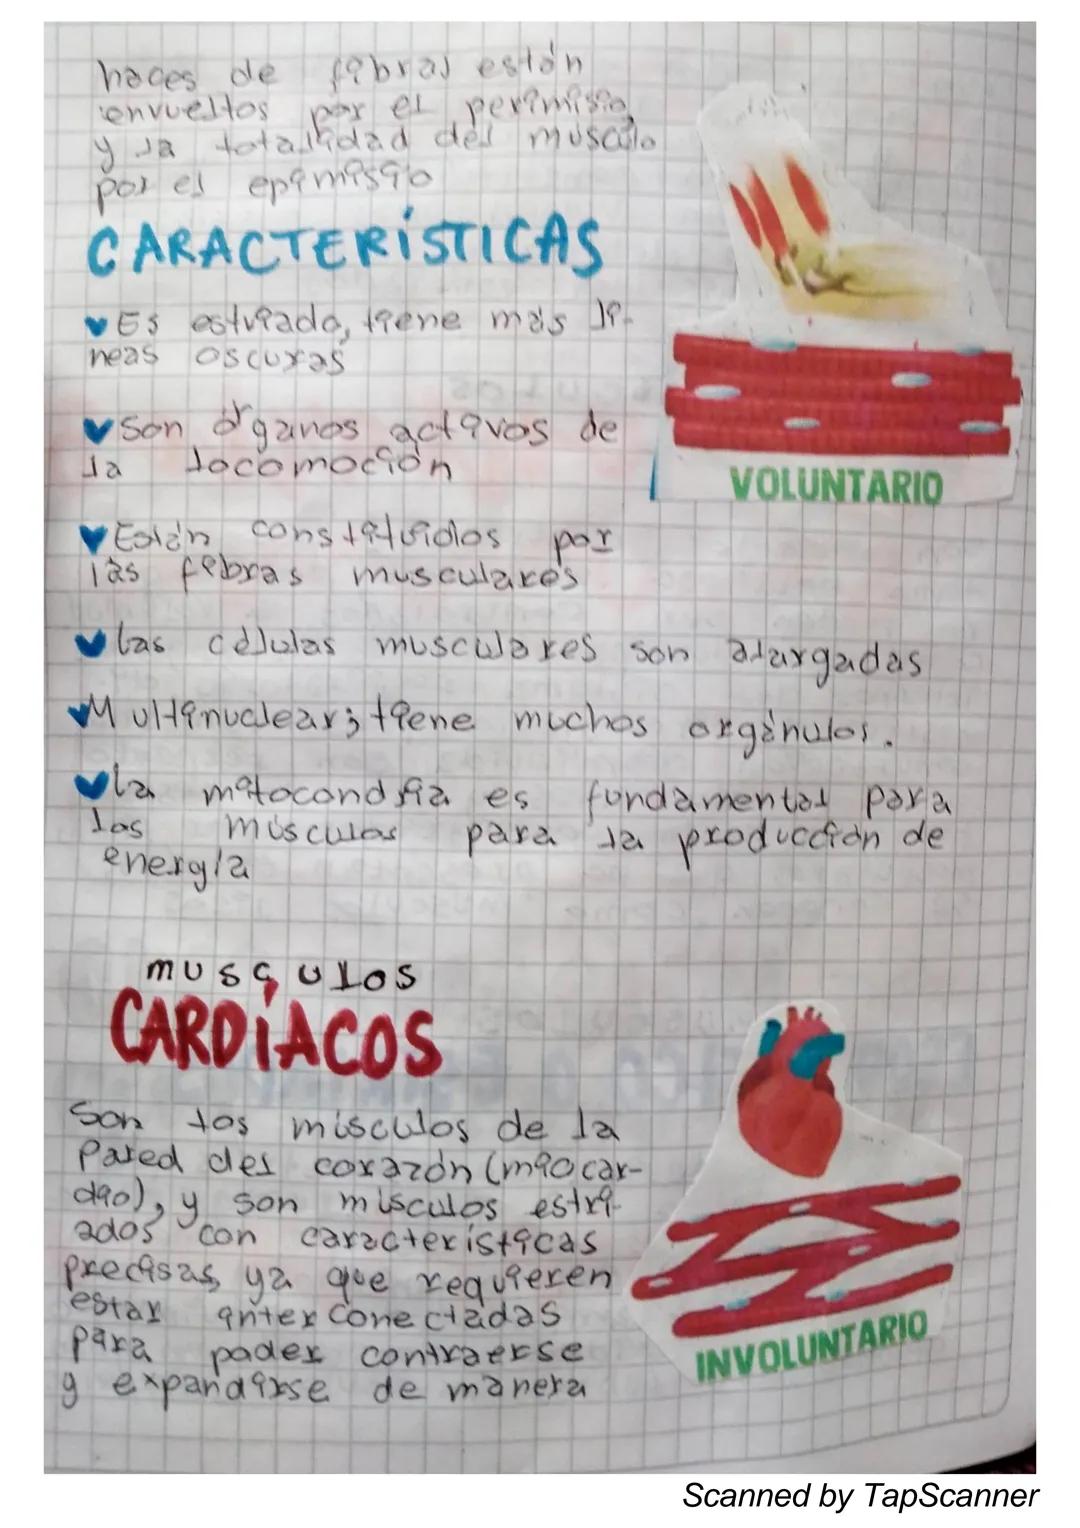 haces de fibras están
envueltos por el perimisio
y la totalidad del musculo
por el epimisio
CARACTERÍSTICAS
Es estriado, tiene más lí-
neas oscuras
VOLUNTARIO
Son órganos activos de
la locomoción
Están constituidos por
las fibras musculares
las células musculares son alargadas
Multinuclear; tiene muchos orgánulos.
la mitocondria es fundamental para
los músculos para la producción de
energía
musculos
CARDÍACOS
Son los músculos de la
Pared del corazón (miocar-
dio), y son músculos estri-
ados con características
precisas, ya que requieren
estar interconectadas
para poder contraerse
y expandirse de manera
INVOLUNTARIO
Scanned by TapScanner